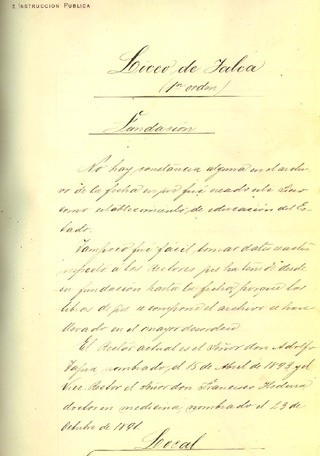 E INSTRUCCION PUBLICA
Liceo de Talca
(1er orden)
Fundación
No hay constancia alguna en el archi-
vo de la fecha en que fué creado este Liceo
como establecimiento de educacion del Es-
tado.
Tampoco fué fácil tomar datos exactos
respecto a los Rectores que ha tenido desde
su fundación hasta la fecha porque los
libros de que se compone el archivo se han
llevado en el mayor desorden
El Rector actual es el Señor don Adolfo
Tapia nombrado el 15 de Abril de 1893 y el
Vice Rector el Señor don Francisco Hederra
doctor en medicina, nombrado el 23 de
Octubre de 1891.
Local